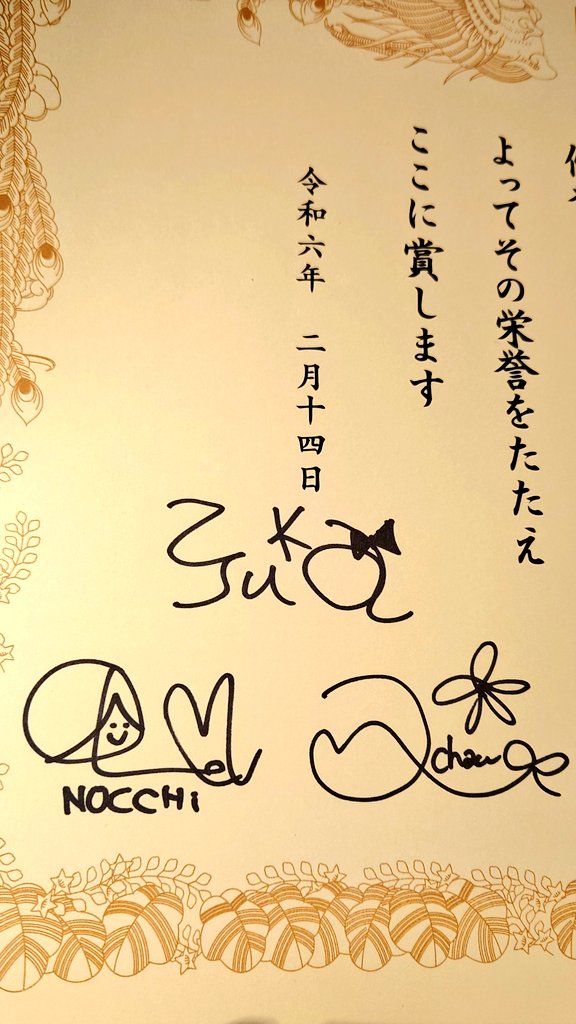 よってその栄誉をたたえ
ここに賞します
令和六年 二月十四日
NOCCHi
chan